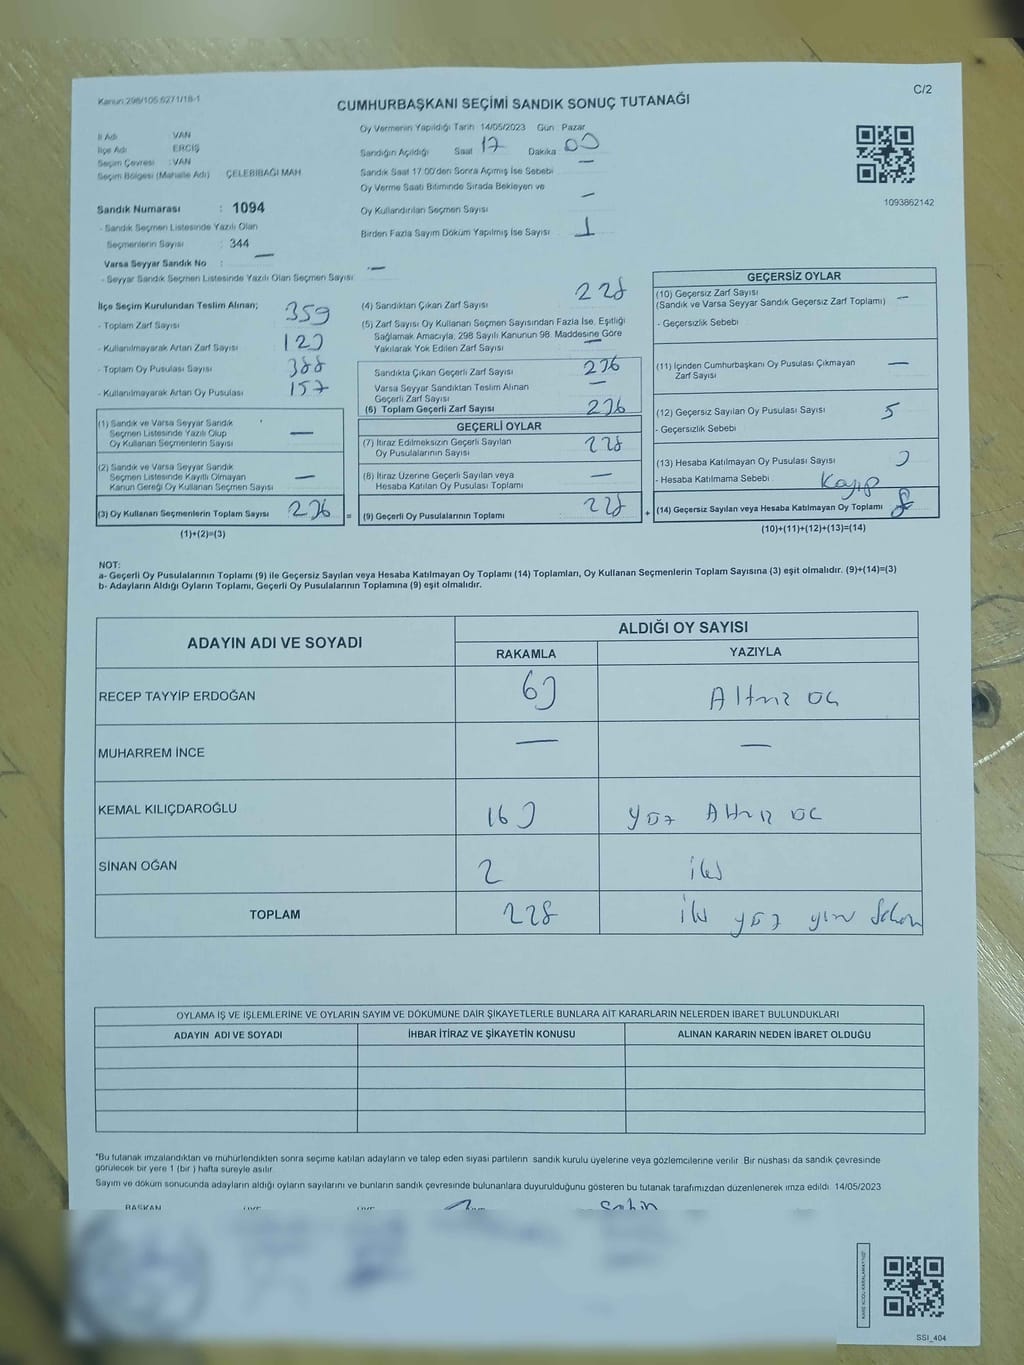 Kanun:298/105.6271/18-1
CUMHURBAŞKANI SEÇİMİ SANDIK SONUÇ TUTANAĞI
C/2
İl Adı VAN
İlçe Adı ERCİŞ
Seçim Çevresi : VAN
Seçim Bölgesi (Mahalle Adı) ÇELEBİBAĞI MAH.
Sandık Numarası : 1094
- Sandık Seçmen Listesinde Yazılı Olan
Seçmenlerin Sayısı : 344
Varsa Seyyar Sandık No : —
- Seyyar Sandık Seçmen Listesinde Yazılı Olan Seçmen Sayısı : —
Oy Vermenin Yapıldığı Tarih 14/05/2023 Gün Pazar
Sandığın Açıldığı Saat 17 Dakika 00
Sandık Saat 17.00'den Sonra Açımış İse Sebebi —
Oy Verme Saati Bitiminde Sırada Bekleyen ve
Oy Kullandırılan Seçmen Sayısı —
Birden Fazla Sayım Döküm Yapılmış İse Sayısı 1
1093862142
İlçe Seçim Kurulundan Teslim Alınan;
- Toplam Zarf Sayısı 359
- Kullanılmayarak Artan Zarf Sayısı 123
- Toplam Oy Pusulası Sayısı 388
- Kullanılmayarak Artan Oy Pusulası 157
(1) Sandık ve Varsa Seyyar Sandık
Seçmen Listesinde Yazılı Olup
Oy Kullanan Seçmenlerin Sayısı —
(2) Sandık ve Varsa Seyyar Sandık
Seçmen Listesinde Kayıtlı Olmayan
Kanun Gereği Oy Kullanan Seçmen Sayısı —
(3) Oy Kullanan Seçmenlerin Toplam Sayısı 236
(1)+(2)=(3)
(4) Sandıktan Çıkan Zarf Sayısı 228
(5) Zarf Sayısı Oy Kullanan Seçmen Sayısından Fazla İse, Eşitliği
Sağlamak Amacıyla, 298 Sayılı Kanunun 98. Maddesine Göre
Yakılarak Yok Edilen Zarf Sayısı —
Sandıkta Çıkan Geçerli Zarf Sayısı 236
Varsa Seyyar Sandıktan Teslim Alınan
Geçerli Zarf Sayısı —
(6) Toplam Geçerli Zarf Sayısı 236
GEÇERLİ OYLAR
(7) İtiraz Edilmeksizin Geçerli Sayılan
Oy Pusulalarının Sayısı 228
(8) İtiraz Üzerine Geçerli Sayılan veya
Hesaba Katılan Oy Pusulası Toplamı —
= (9) Geçerli Oy Pusulalarının Toplamı 228
GEÇERSİZ OYLAR
(10) Geçersiz Zarf Sayısı
(Sandık ve Varsa Seyyar Sandık Geçersiz Zarf Toplamı) —
- Geçersizlik Sebebi
(11) İçinden Cumhurbaşkanı Oy Pusulası Çıkmayan
Zarf Sayısı —
(12) Geçersiz Sayılan Oy Pusulası Sayısı 5
- Geçersizlik Sebebi
(13) Hesaba Katılmayan Oy Pusulası Sayısı 3
- Hesaba Katılmama Sebebi Kayıp
+ (14) Geçersiz Sayılan veya Hesaba Katılmayan Oy Toplamı 8
(10)+(11)+(12)+(13)=(14)
NOT:
a- Geçerli Oy Pusulalarının Toplamı (9) ile Geçersiz Sayılan veya Hesaba Katılmayan Oy Toplamı (14) Toplamları, Oy Kullanan Seçmenlerin Toplam Sayısına (3) eşit olmalıdır. (9)+(14)=(3)
b- Adayların Aldığı Oyların Toplamı, Geçerli Oy Pusulalarının Toplamına (9) eşit olmalıdır.
ADAYIN ADI VE SOYADI
ALDIĞI OY SAYISI
RAKAMLA YAZIYLA
RECEP TAYYİP ERDOĞAN 63 Altmış üç
MUHARREM İNCE — —
KEMAL KILIÇDAROĞLU 163 yüz Altmış üç
SİNAN OĞAN 2 iki
TOPLAM 228 iki yüz yirmi Sekiz
OYLAMA İŞ VE İŞLEMLERİNE VE OYLARIN SAYIM VE DÖKÜMÜNE DAİR ŞİKAYETLERLE BUNLARA AİT KARARLARIN NELERDEN İBARET BULUNDUKLARI
ADAYIN ADI VE SOYADI İHBAR İTİRAZ VE ŞİKAYETİN KONUSU ALINAN KARARIN NEDEN İBARET OLDUĞU
*Bu tutanak imzalandıktan ve mühürlendikten sonra seçime katılan adayların ve talep eden siyasi partilerin sandık kurulu üyelerine veya gözlemcilerine verilir. Bir nüshası da sandık çevresinde
görülecek bir yere 1 (bir) hafta süreyle asılır.
Sayım ve döküm sonucunda adayların aldığı oyların sayılarını ve bunların sandık çevresinde bulunanlara duyurulduğunu gösteren bu tutanak tarafımızdan düzenlenerek imza edildi. 14/05/2023
BAŞKAN ÜYE ÜYE Şahin
SSİ_404